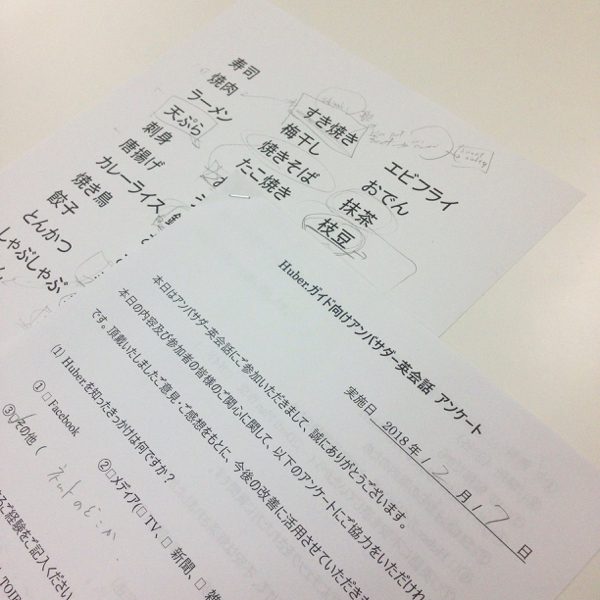 寿司
焼肉
ラーメン
天ぷら
刺身
唐揚げ
カレーライス
焼き鳥
餃子
とんかつ
しゃぶしゃぶ
すき焼き
梅干し
焼きそば
たこ焼き
エビフライ
おでん
抹茶
枝豆
Huber.ガイド向けアンバサダー英会話 アンケート
実施日 2018年 12月17日
本日はアンバサダー英会話にご参加いただきまして、誠にありがとうございます。
本日の内容及び参加者の皆様のご関心に関して、以下のアンケートにご協力をいただけれ
です。頂戴いたしましたご意見・ご感想をもとに、今後の改善に活用させていただきま
(1) Huber.を知ったきっかけは何ですか?
①□Facebook ②□メディア(□ TV、□ 新聞、□ 雑
③その他 ( ネットのどこか
ご経験をご記入ください